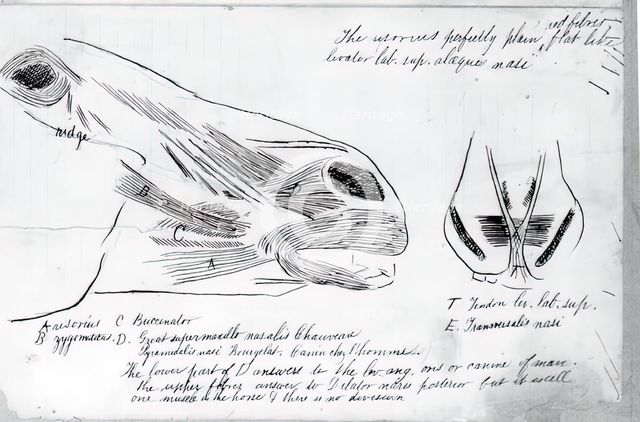 The risorius perfectly plain, red fibres
flat like
levator lab. sup. alæque nasi
ridge
B
C
A
T
A risorius C Buccinator
B zygomaticus. D. Great supermaxillo nasalis Chauveau
Pyramidalis nasi Bourgelat. Canin chez l'homme.
The lower part of D answers to the lev. ang. oris or canine of man.
the upper fibres answer to Dilator naris posterior but it is all
one muscle in the horse & there is no division
T Tendon lev. lab. sup.
E. Transversalis nasi
heritage